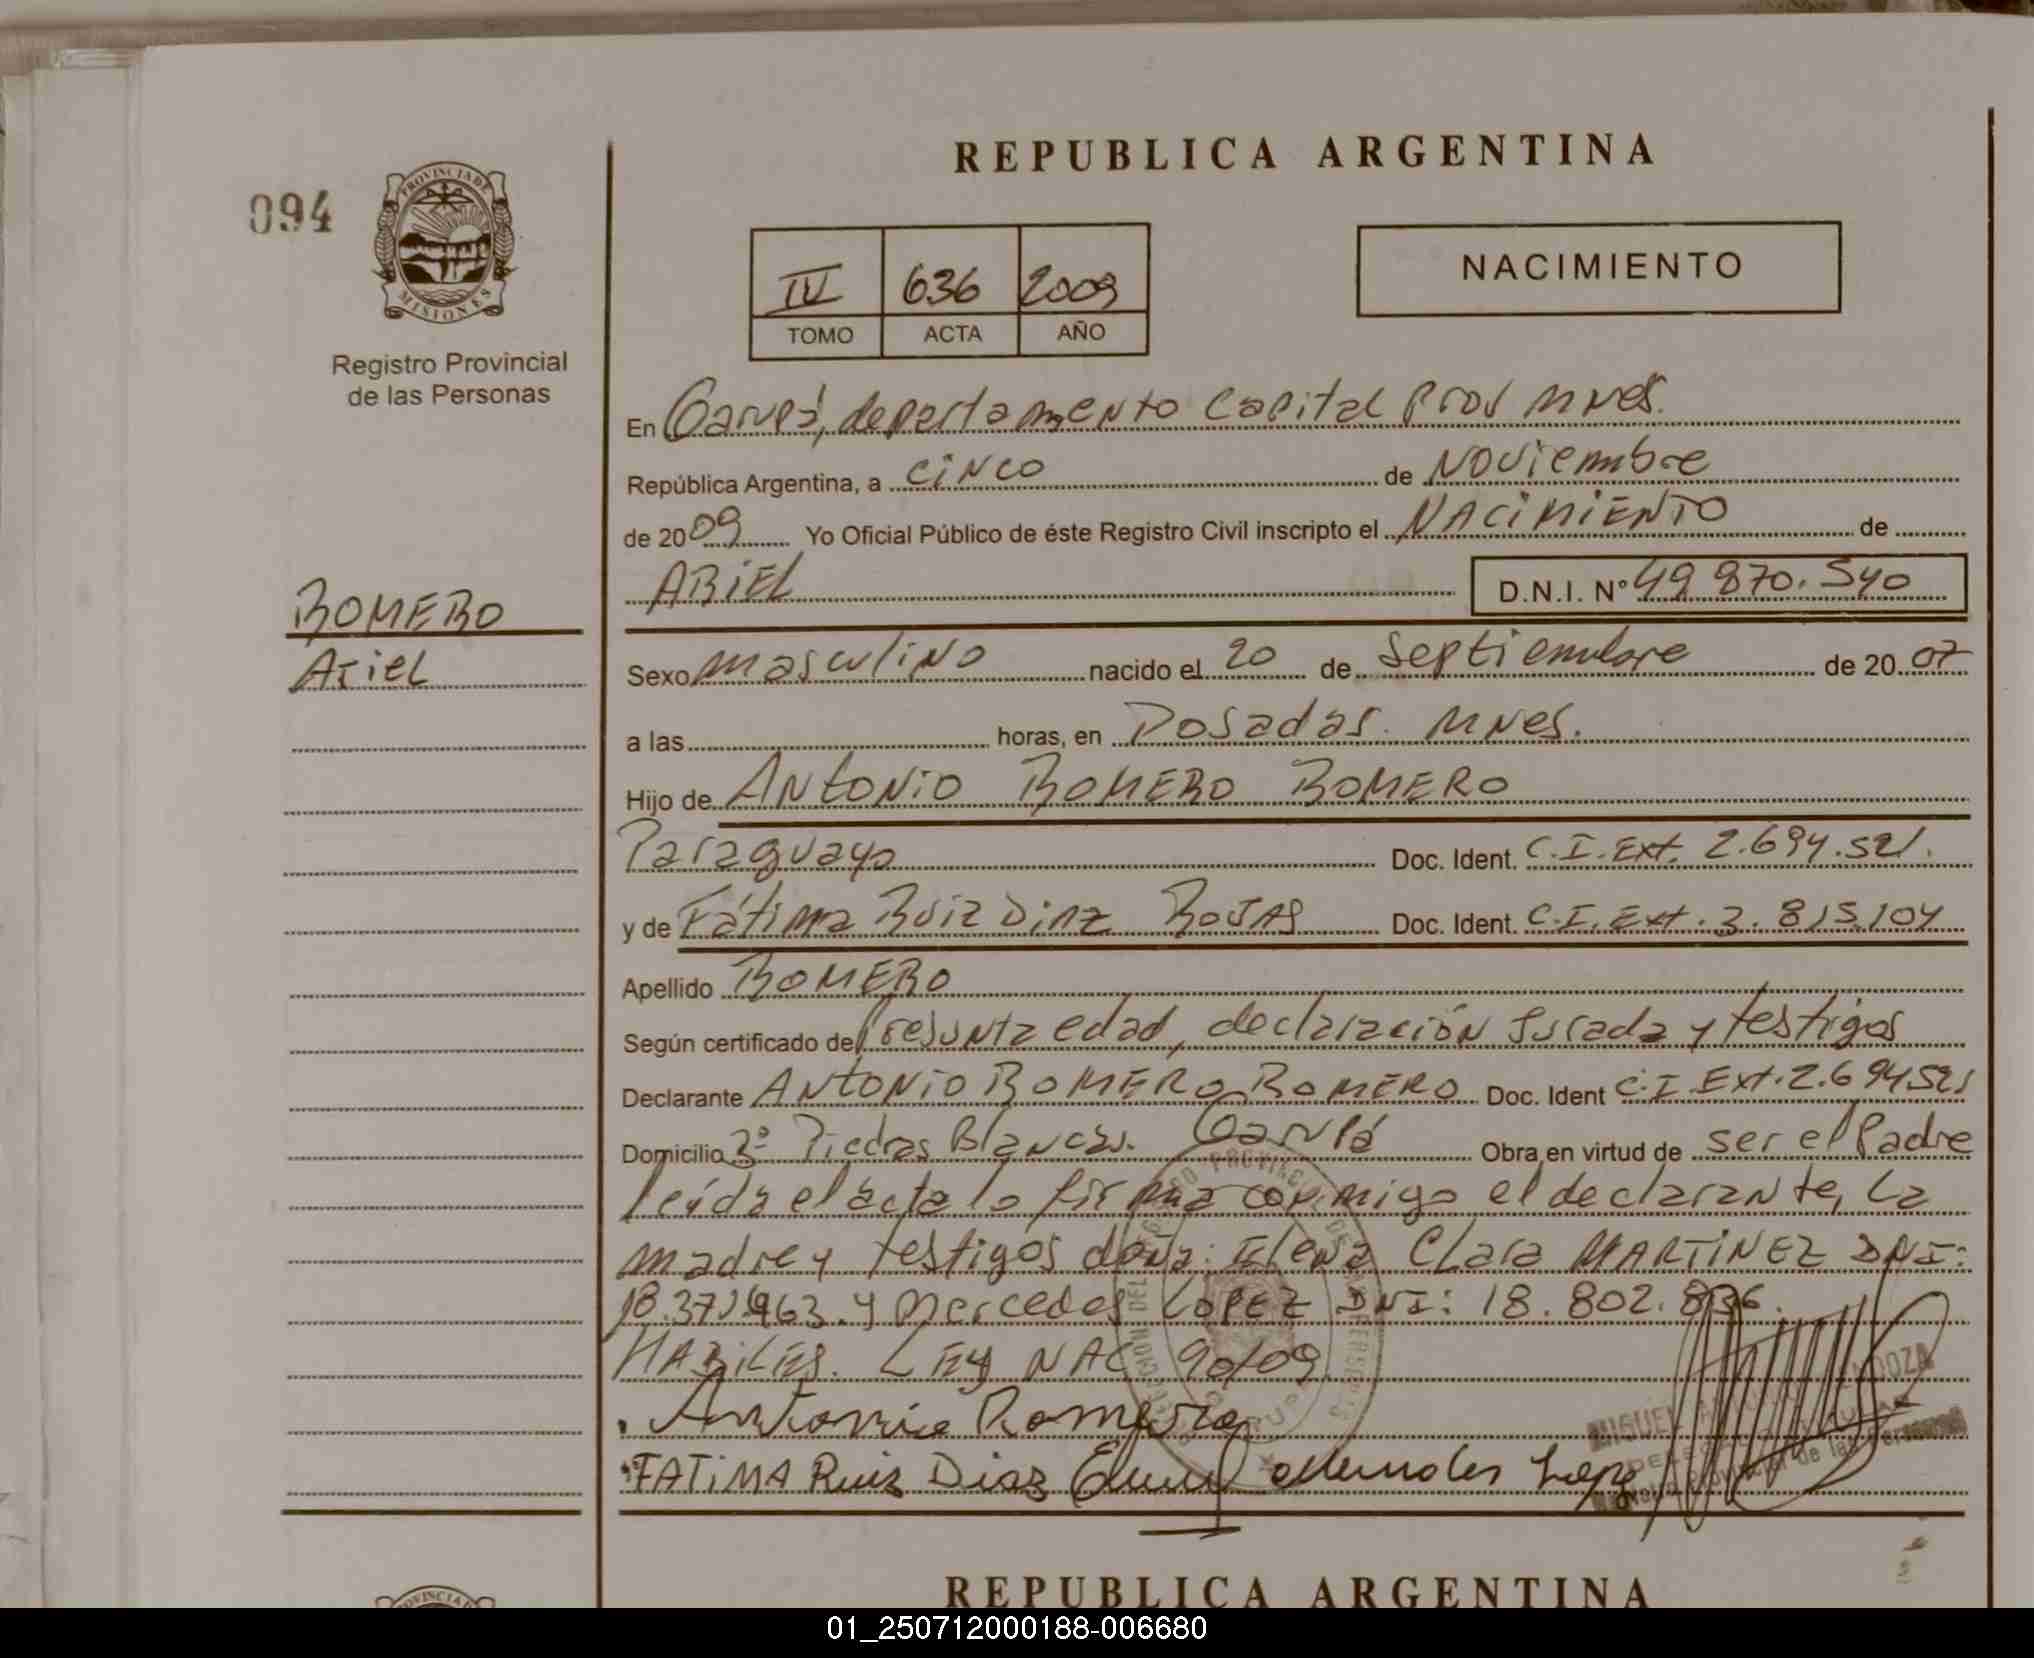 REPUBLICA ARGENTINA
094
PROVINCIA DE
MISIONES
Registro Provincial
de las Personas
NACIMIENTO
IV 636 2009
TOMO ACTA AÑO
En Garupá, departamento Capital Prov Mnes.
República Argentina, a cinco de Noviembre
de 2009 Yo Oficial Público de éste Registro Civil inscripto el NACIMIENTO de
ARIEL D.N.I. Nº 49 870.540
ROMERO
Ariel
Sexo masculino nacido el 20 de Septiembre de 2007
a las horas, en Posadas. Mnes.
Hijo de ANTONIO ROMERO ROMERO
Paraguayo Doc. Ident. C.I.Ext. 2.694.521.
y de Fátima Ruiz Diaz ROJAS Doc. Ident. C.I.Ext. 3.815.104
Apellido ROMERO
Según certificado de Presunta edad, declaración Jurada y testigos
Declarante ANTONIO ROMERO ROMERO Doc. Ident C.I Ext. 2.694521
Domicilio Bº Piedras Blancas. Garupá Obra en virtud de ser el Padre
leída el acta lo firma conmigo el declarante, la
madre y testigos doña: Elena Clara MARTINEZ DNI:
y Mercedes LOPEZ DNI: 18.802.836.
HABILES. LEY NAC
Antonio Romero
FATIMA Ruiz Diaz
MIGUEL
REPUBLICA ARGENTINA
01_250712000188-006680